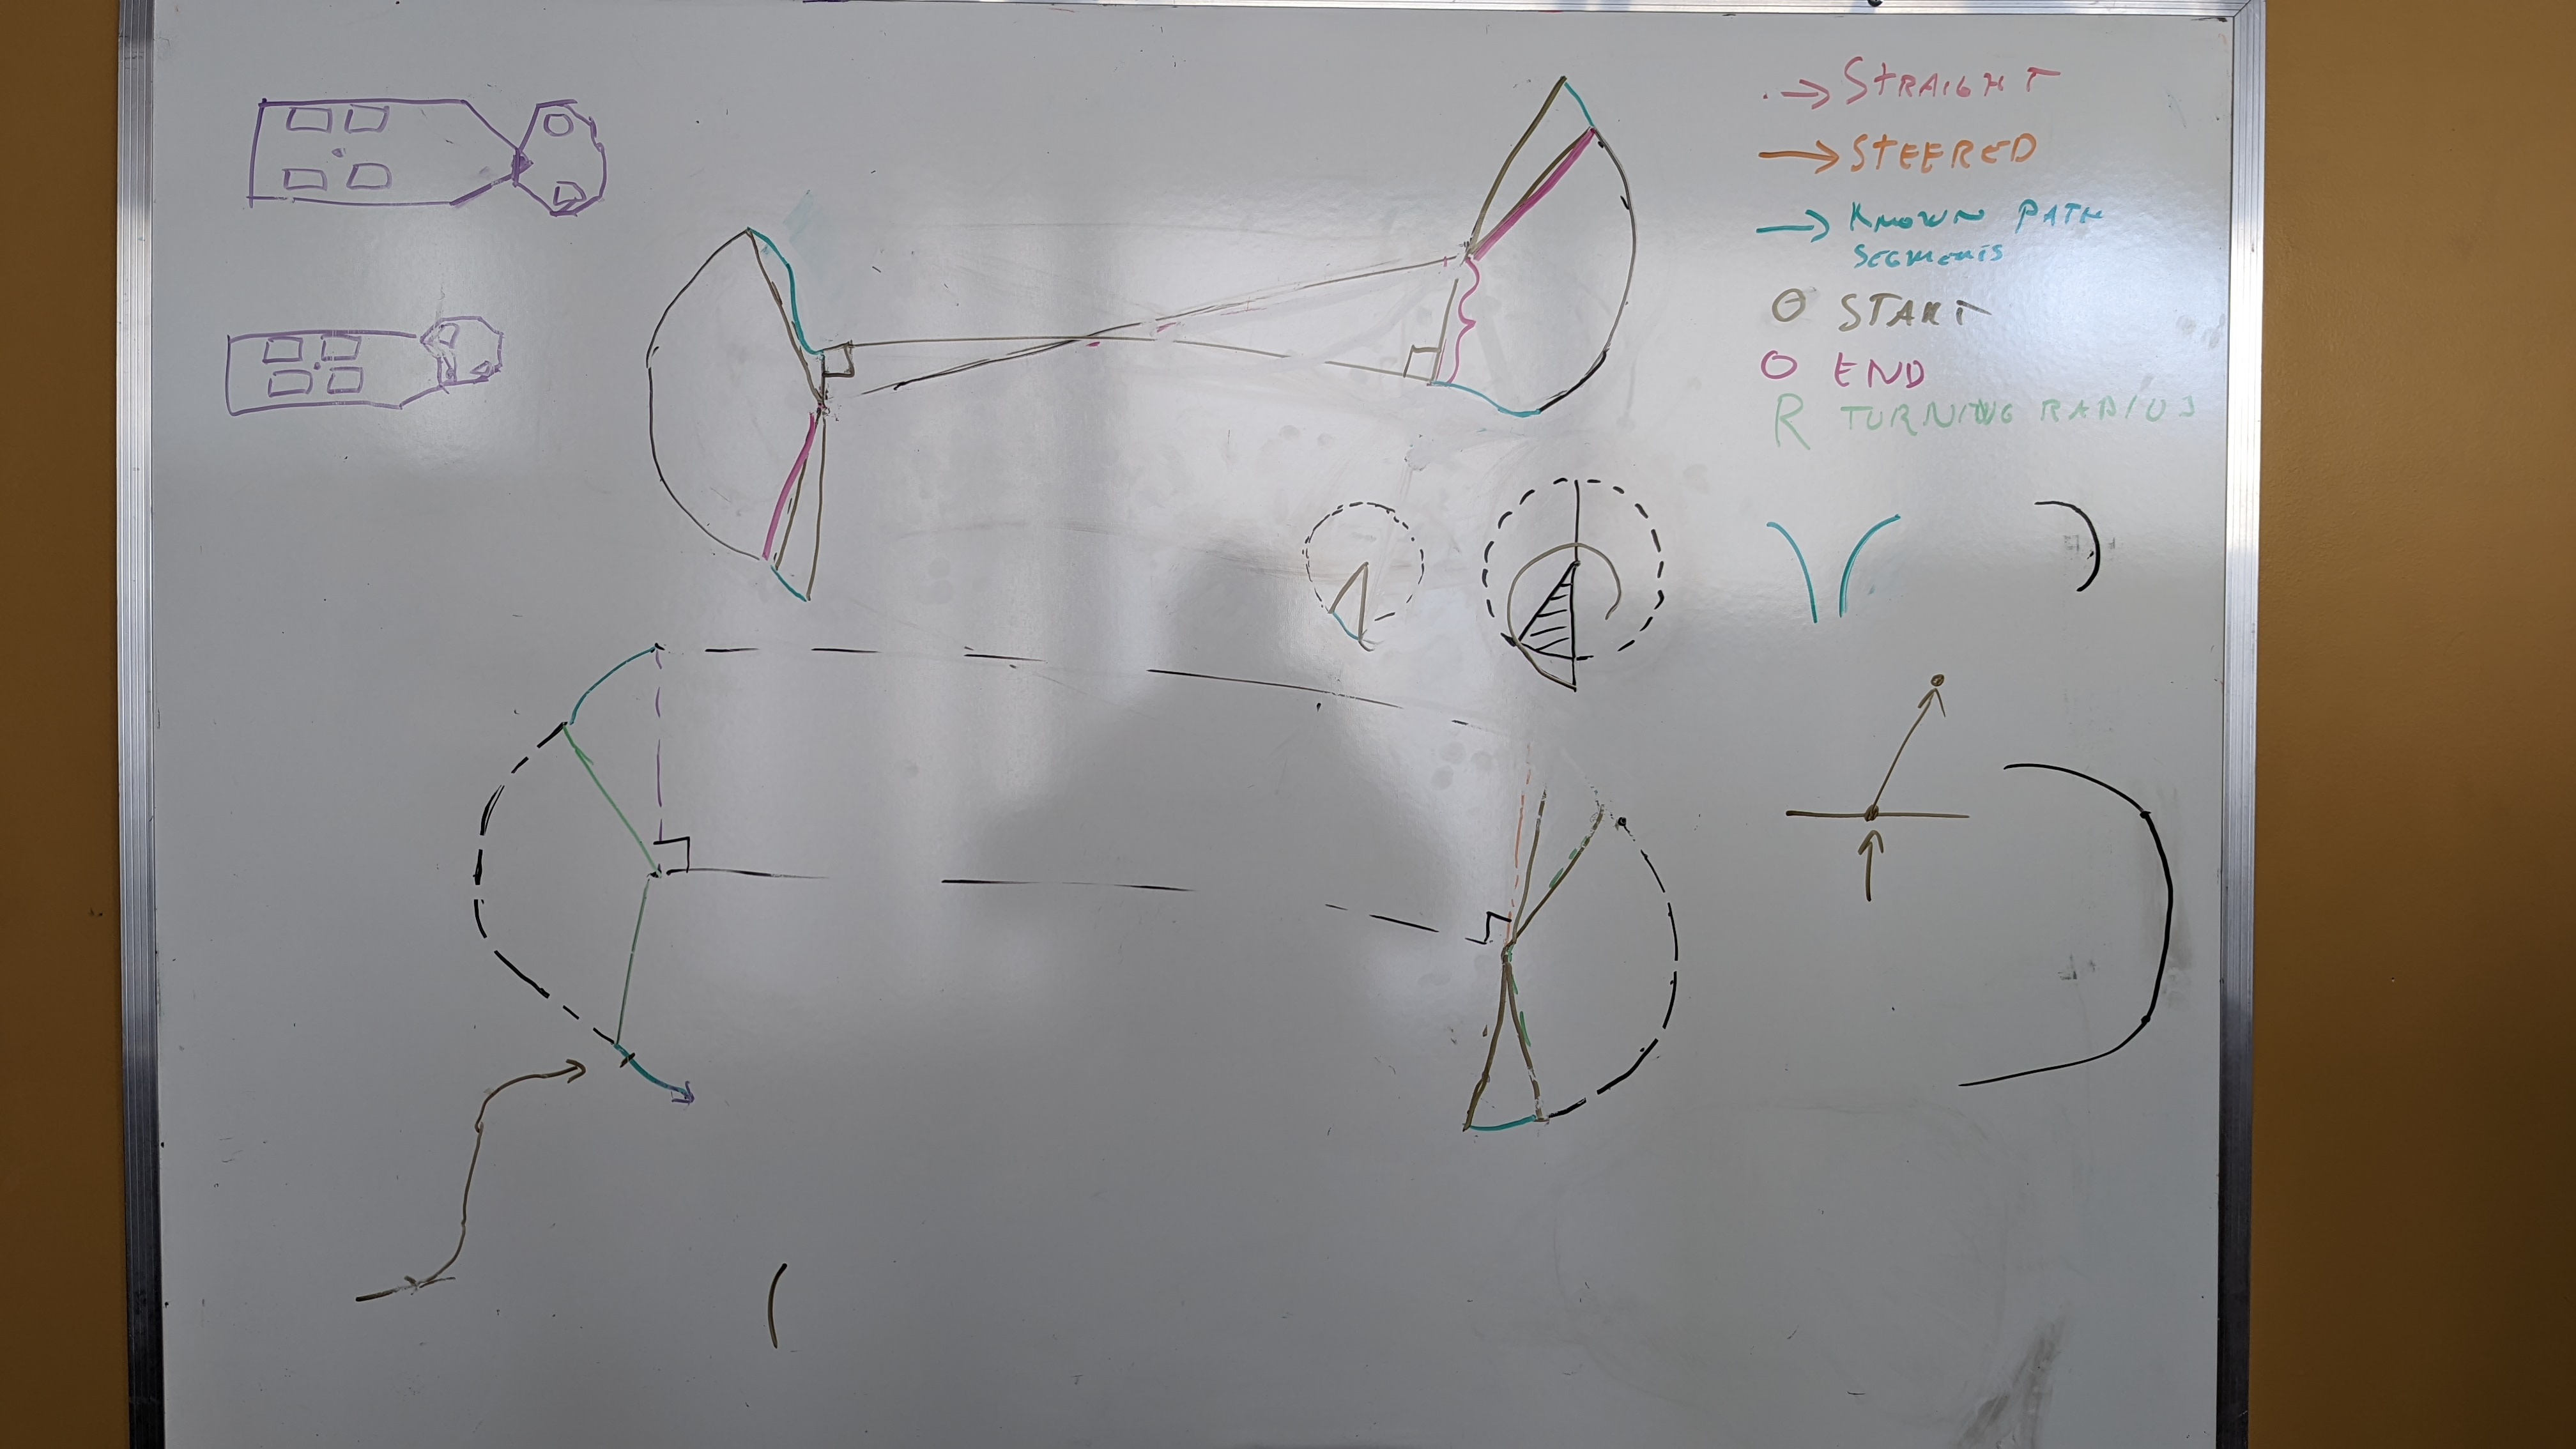 STRAIGHT
STEERED
KNOWN PATH
SEGMENTS
START
END
R TURNING RADIUS